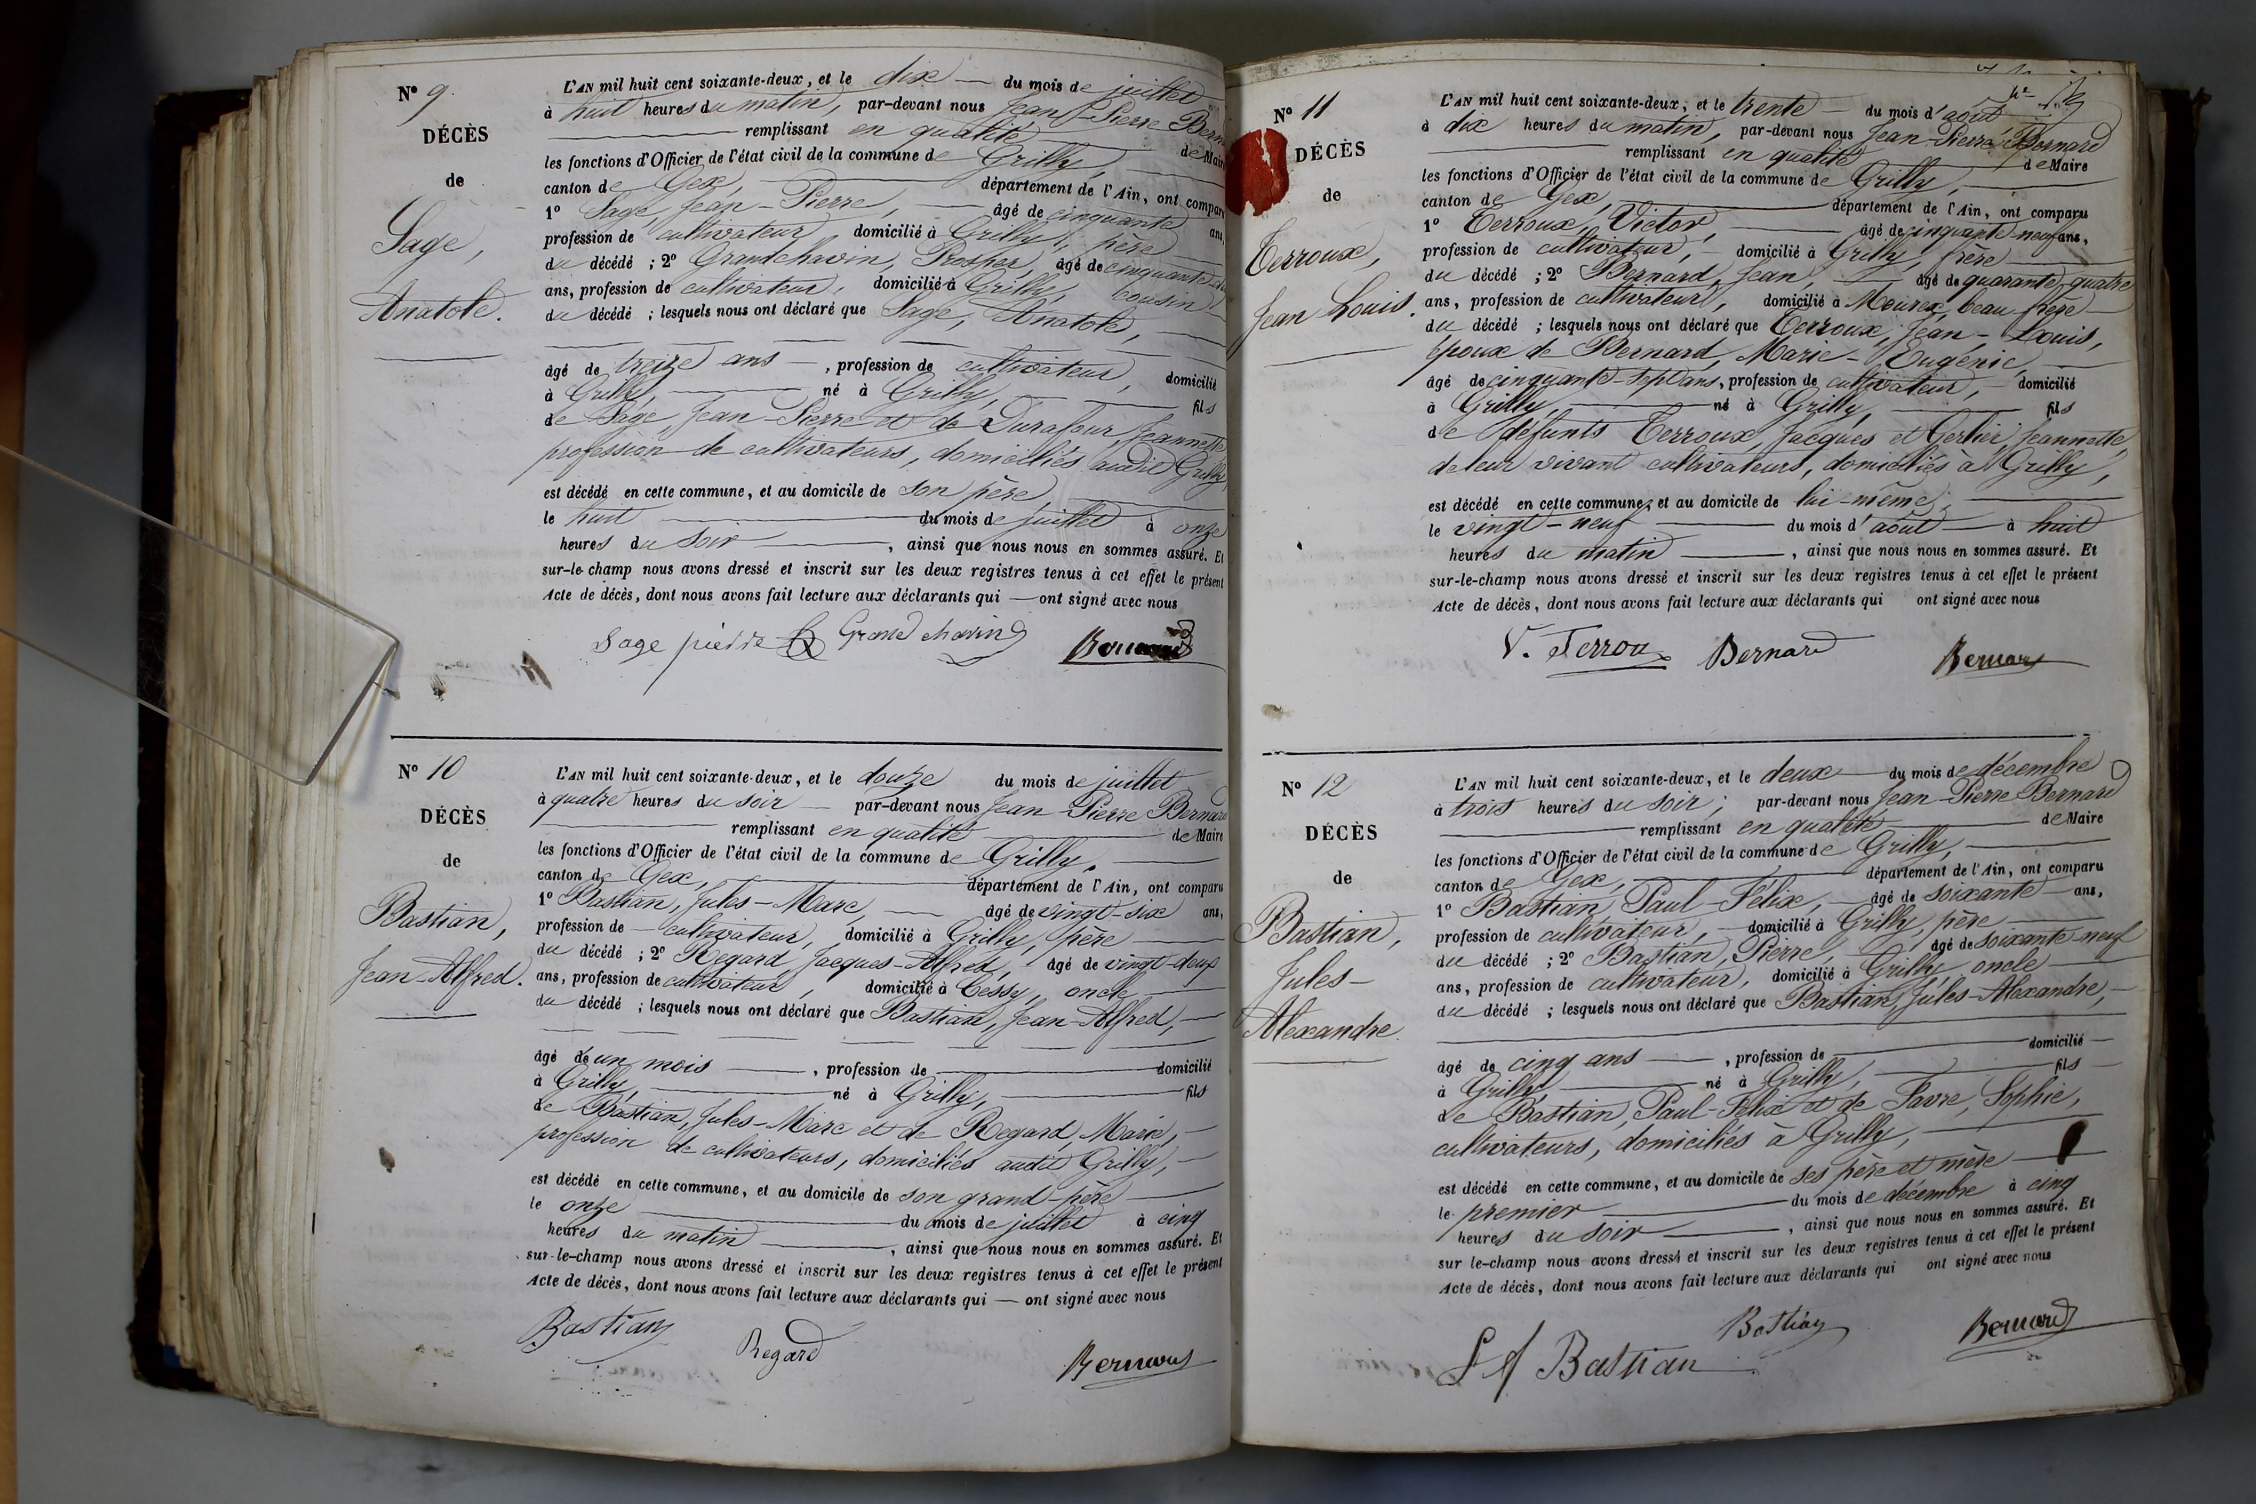 N° 9
DÉCÈS
de
Sage,
Anatole.
L'AN mil huit cent soixante-deux, et le dix du mois de juillet
à huit heures du matin, par-devant nous Jean-Pierre Bern
remplissant en qualité de Maire
les fonctions d'Officier de l'état civil de la commune de Grilly,
canton de Gex, département de l'Ain, ont comparu
1° Sage, Jean-Pierre, âgé de cinquante ans,
profession de cultivateur, domicilié à Grilly, père
du décédé ; 2° Grandchavin, Prosper, âgé de cinquante
ans, profession de cultivateur, domicilié à Grilly, cousin
du décédé ; lesquels nous ont déclaré que Sage, Anatole,
âgé de treize ans, profession de cultivateur, domicilié
à Grilly, né à Grilly, fils
de Sage, Jean-Pierre et de Durafour, Jeannette
profession de cultivateurs, domiciliés audit Grilly,
est décédé en cette commune, et au domicile de son père,
le huit du mois de juillet à onze
heures du soir, ainsi que nous nous en sommes assuré. Et
sur-le-champ nous avons dressé et inscrit sur les deux registres tenus à cet effet le présent
Acte de décès, dont nous avons fait lecture aux déclarants qui — ont signé avec nous
Sage pierre Grandchavin Bernard
N° 10
DÉCÈS
de
Bastian,
Jean-Alfred.
L'AN mil huit cent soixante-deux, et le douze du mois de juillet
à quatre heures du soir — par-devant nous Jean-Pierre Bernard
remplissant en qualité de Maire
les fonctions d'Officier de l'état civil de la commune de Grilly,
canton de Gex, département de l'Ain, ont comparu
1° Bastian, Jules-Marc, âgé de vingt-six ans,
profession de cultivateur, domicilié à Grilly, père
du décédé ; 2° Regard Jacques-Alfred, âgé de vingt-deux
ans, profession de cultivateur, domicilié à Cessy, oncle
du décédé ; lesquels nous ont déclaré que Bastian, Jean-Alfred,
âgé de un mois, profession de — domicilié
à Grilly, né à Grilly, fils
de Bastian, Jules-Marc et de Regard, Marie,
profession de cultivateurs, domiciliés audit Grilly,
est décédé en cette commune, et au domicile de son grand-père
le onze du mois de juillet à cinq
heures du matin, ainsi que nous nous en sommes assuré. Et
sur-le-champ nous avons dressé et inscrit sur les deux registres tenus à cet effet le présent
Acte de décès, dont nous avons fait lecture aux déclarants qui — ont signé avec nous
Bastian Regard Bernard
N° 11
DÉCÈS
de
Terroux,
Jean Louis.
L'AN mil huit cent soixante-deux, et le trente du mois d'août
à dix heures du matin, par-devant nous Jean-Pierre Bernard
remplissant en qualité de Maire
les fonctions d'Officier de l'état civil de la commune de Grilly,
canton de Gex, département de l'Ain, ont comparu
1° Terroux, Victor, âgé de cinquante-neuf ans,
profession de cultivateur, domicilié à Grilly, frère
du décédé ; 2° Bernard, Jean, âgé de quarante-quatre
ans, profession de cultivateur, domicilié à Mourex, beau frère
du décédé ; lesquels nous ont déclaré que Terroux, Jean-Louis,
époux de Bernard, Marie-Eugénie,
âgé de cinquante-sept ans, profession de cultivateur, domicilié
à Grilly, né à Grilly, fils
de défunts Terroux, Jacques et Gerlier, Jeannette,
de leur vivant cultivateurs, domiciliés à Grilly,
est décédé en cette commune, et au domicile de lui-même,
le vingt-neuf du mois d'août à huit
heures du matin, ainsi que nous nous en sommes assuré. Et
sur-le-champ nous avons dressé et inscrit sur les deux registres tenus à cet effet le présent
Acte de décès, dont nous avons fait lecture aux déclarants qui ont signé avec nous
V. Terroux Bernard Bernard
N° 12
DÉCÈS
de
Bastian,
Jules-
Alexandre.
L'AN mil huit cent soixante-deux, et le deux du mois de décembre
à trois heures du soir; par-devant nous Jean-Pierre Bernard
remplissant en qualité de Maire
les fonctions d'Officier de l'état civil de la commune de Grilly,
canton de Gex, département de l'Ain, ont comparu
1° Bastian, Paul-Félix, âgé de soixante ans,
profession de cultivateur, domicilié à Grilly, père
du décédé ; 2° Bastian, Pierre, âgé de soixante-neuf
ans, profession de cultivateur, domicilié à Grilly, oncle
du décédé ; lesquels nous ont déclaré que Bastian, Jules-Alexandre,
âgé de cinq ans, profession de — domicilié
à Grilly né à Grilly, fils
de Bastian, Paul-Félix et de Favre, Sophie,
cultivateurs, domiciliés à Grilly,
est décédé en cette commune, et au domicile de ses père et mère
le premier du mois de décembre à cinq
heures du soir, ainsi que nous nous en sommes assuré. Et
sur le-champ nous avons dressé et inscrit sur les deux registres tenus à cet effet le présent
Acte de décès, dont nous avons fait lecture aux déclarants qui ont signé avec nous
Bastian Bastian Bernard